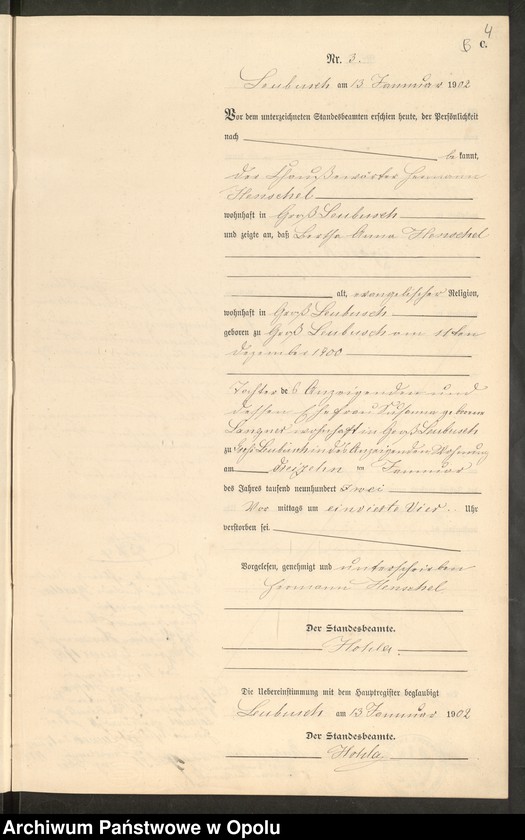 4
B c.
Nr. 3.
Leubusch am 13 Januar 1902
Vor dem unterzeichneten Standesbeamten erschien heute, der Persönlichkeit
nach
be kannt,
der Chaußeewärter Hermann
Henschel
wohnhaft in Groß Leubusch
und zeigte an, daß Bertha Anna Henschel
alt, evangelischer Religion,
wohnhaft in Groß Leubusch
geboren zu Groß Leubusch am 11ten
Dezember 1900
Tochter des Anzeigenden und
dessen Ehefrau Susanna geborene
Langner wohnhaft in Groß Leubusch
zu Groß Leubusch in des Anzeigenden Wohnung
am dreizehn ten Januar
des Jahres tausend neunhundert zwei
Vor mittags um Vier Uhr
verstorben sei.
Vorgelesen, genehmigt und unterschrieben
Hermann Henschel
Der Standesbeamte.
Hohla.
Die Uebereinstimmung mit dem Hauptregister beglaubigt
Leubusch am 13 Januar 1902
Der Standesbeamte.
Hohla
Archiwum Państwowe w Opolu